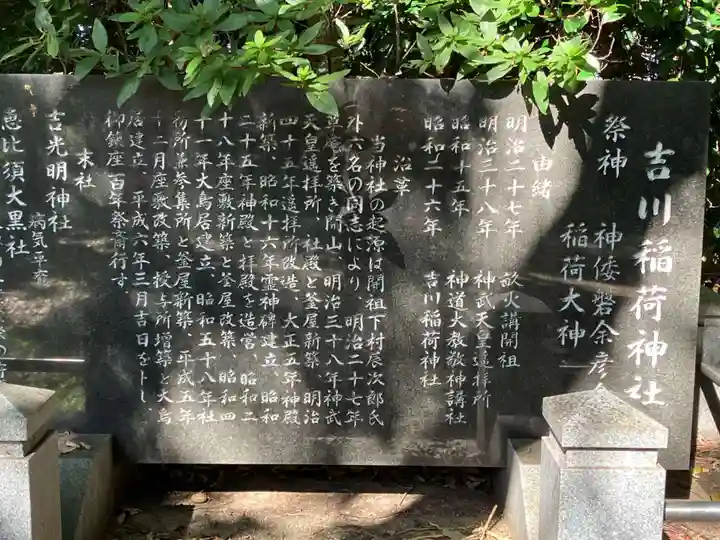 吉川稲荷神社
祭神 神倭磐余彦
稲荷大神
由緒
明治二十七年 畝火講開祖
明治三十八年 神武天皇遥拝所
昭和十五年 神道大教教神講社
昭和二十六年 吉川稲荷神社
沿革
当神社の起源は開祖下村辰次郎氏
外六名の同志により、明治二十七年
草庵を築き開山、明治三十八年神武
天皇遥拝所、社殿と釜屋新築、明治
四十五年遥拝所改造、大正五年神殿
新築、昭和十六年霊神碑建立、昭和
二十五年神殿と拝殿を造営、昭和二
十八年座敷新築と釜屋改築、昭和四
十一年大鳥居建立、昭和五十八年社
務所兼参集所と釜屋新築、平成五年
十二月座敷改築、授与所増築と大鳥
居建立、平成六年三月吉日をトし、
御鎮座百年祭斎行す。
末社
吉光明神社 病気平癒
恵比須大黒社